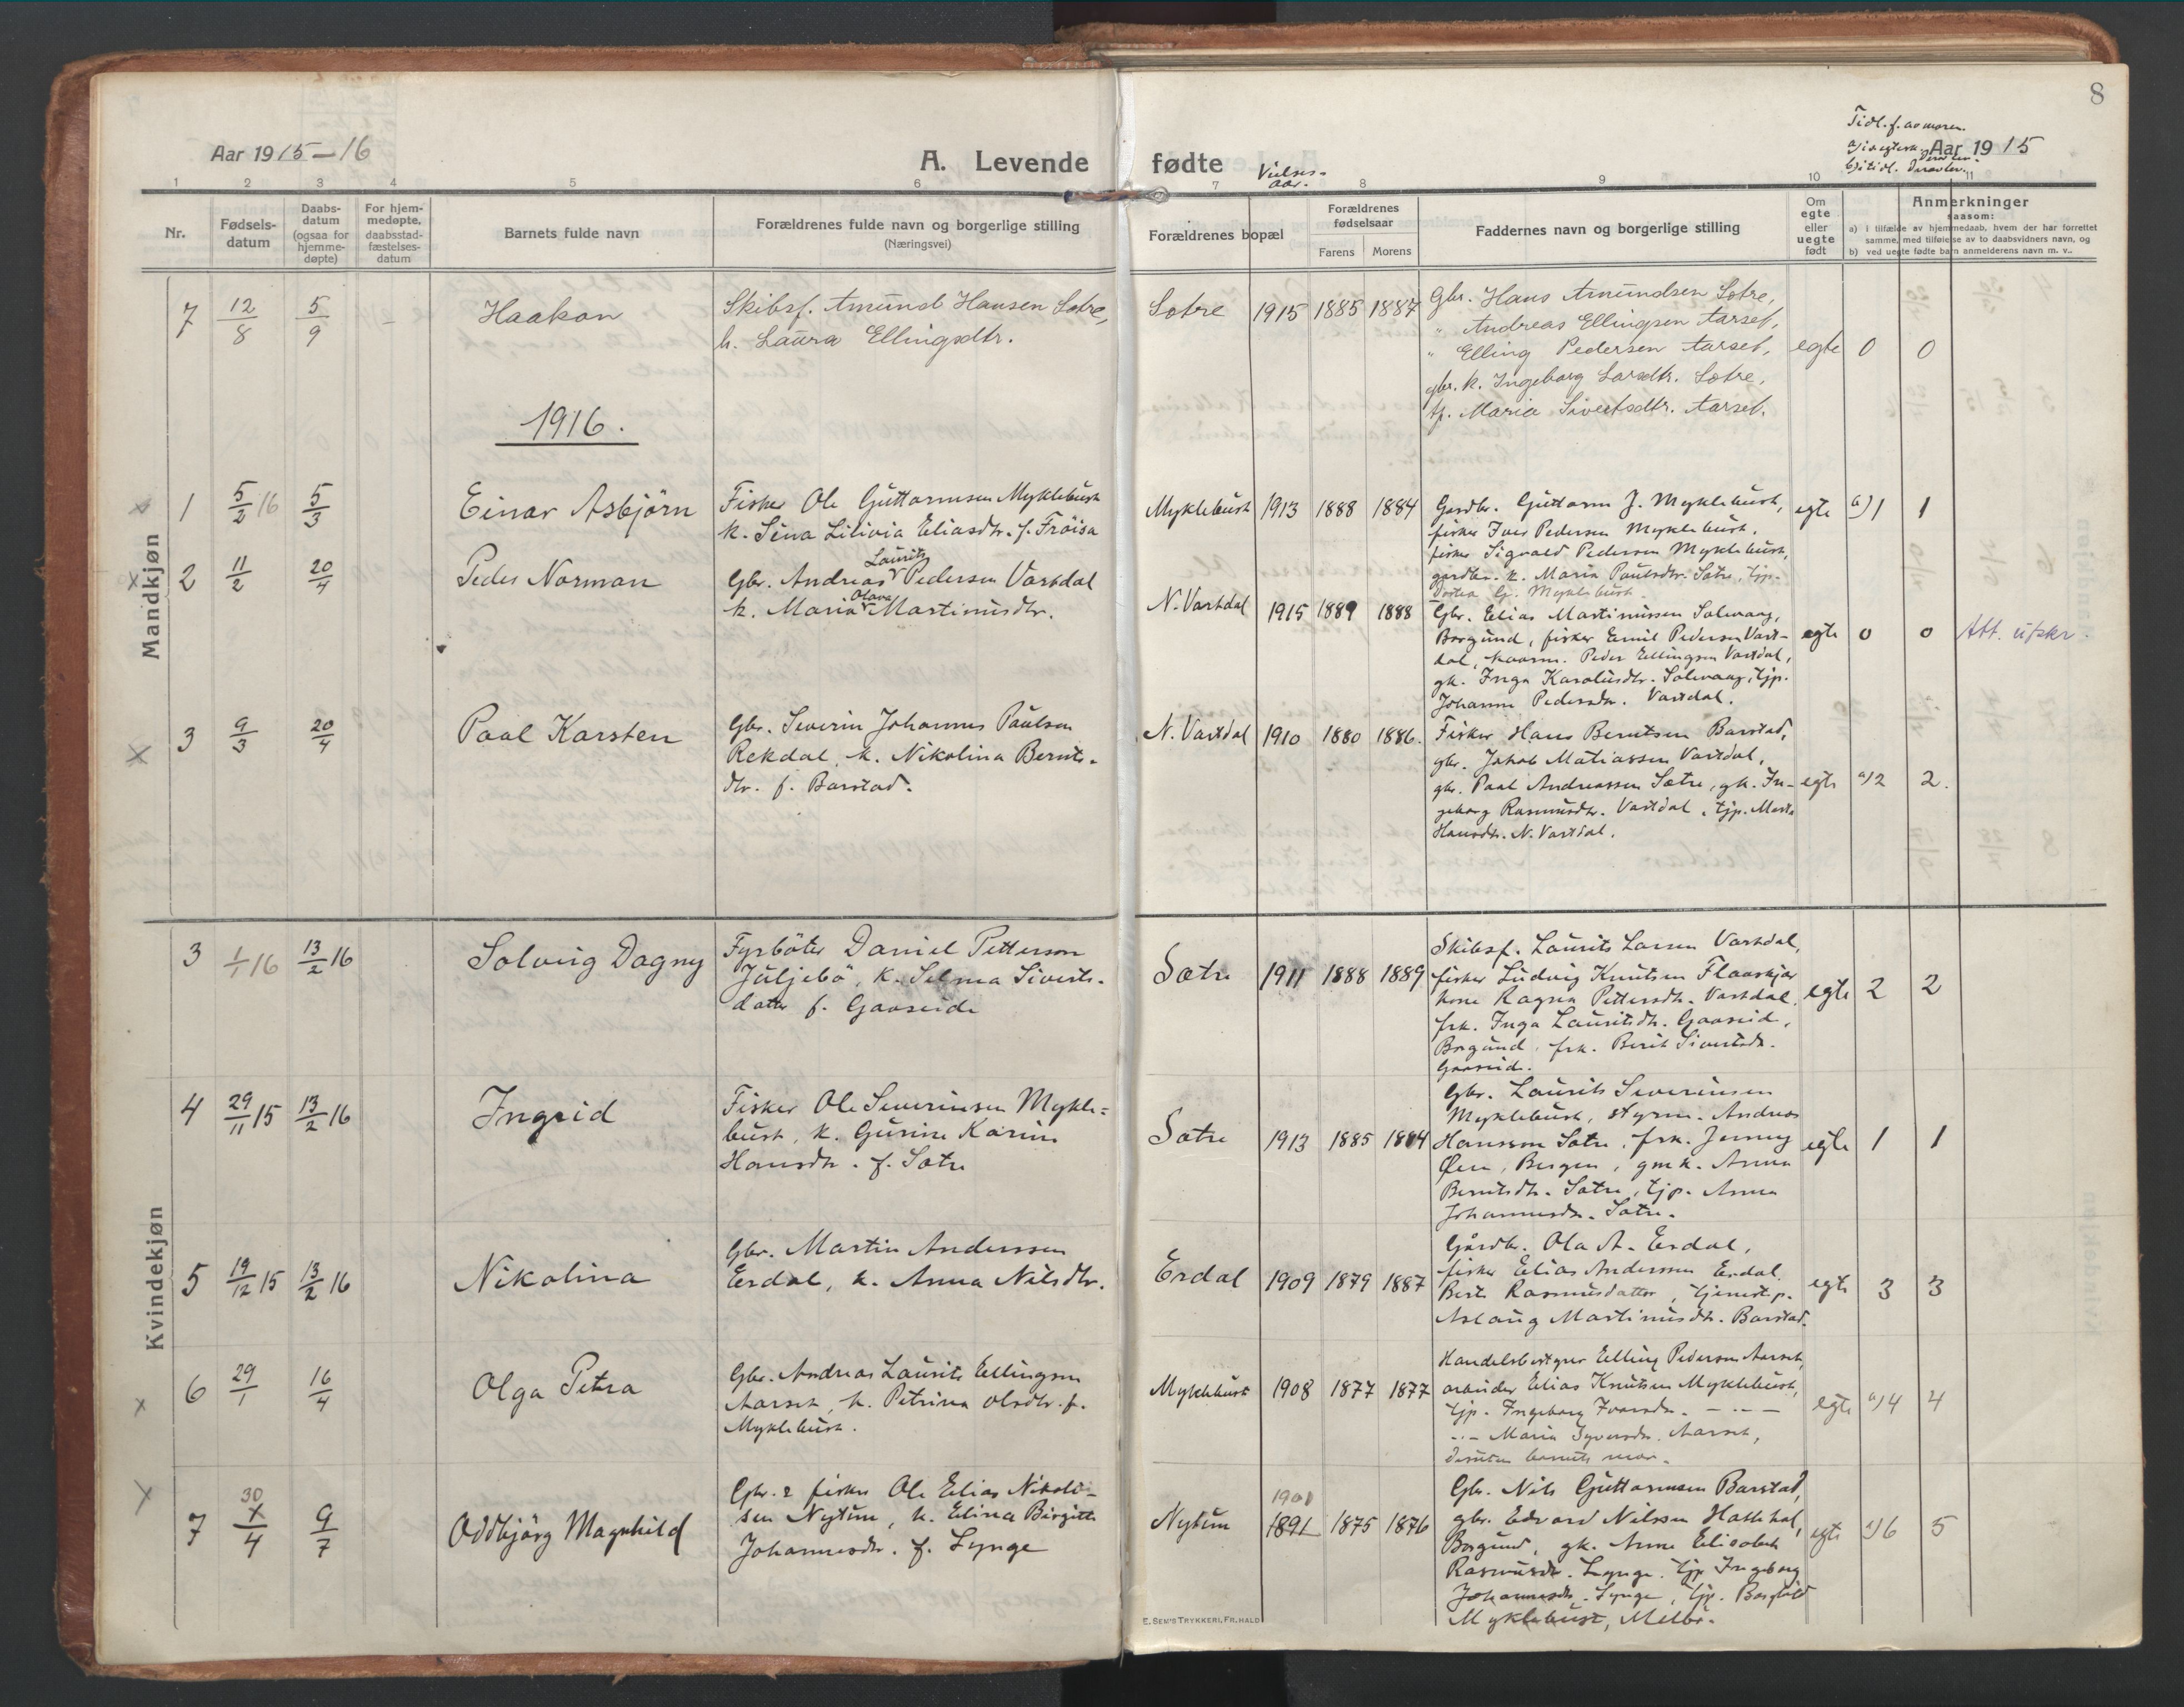 8
Tidl. f. av moren.
Aar 1915—16
A. Levende fødte
Vielses-
aar.
a) i egtesk. Derav lev.
Aar 1915
b) tidl. Derav lev.
1 2 3 4 5 6 7 8 9 10 11
Nr.
Fødsels-
datum
Daabs-
datum
(ogsaa for
hjemme-
døpte)
For hjem-
medøpte,
daabsstad-
fæstelses-
datum
Barnets fulde navn
Forældrenes fulde navn og borgerlige stilling
(Næringsvei)
Forældrenes bopæl
Forældrenes
fødselsaar
Farens Morens
Faddernes navn og borgerlige stilling
Om
egte
eller
uegte
født
Anmerkninger
saasom:
a) i tilfælde av hjemmedaab, hvem der har forrettet
samme, med tilføielse av to daabsvidners navn, og
b) ved uegte fødte barn anmelderens navn m. v..
Mandkjøn
7 12/8 5/9 –
Haakon
Skibsf. Amund Hansen Sætre,
h. Laura Ellingsdtr.
Sætre 1915 1885 1887
Gbr. Hans Amundsen Sætre,
" Andreas Ellingsen Aarset,
" Elling Pedersen Aarset,
gbr. k. Ingeborg Larsdtr. Sætre,
tj. Maria Sivertsdtr. Aarset.
egte 0 0
1916.
x 1 5/2 16 5/3
Einar Asbjörn
Fisker Ole Guttormsen Myklebust
k. Sina Lilivia Eliasdtr. f. Fröisa
Myklebust 1913 1888 1884
Gardbr. Guttorm J. Myklebust,
fisker Iver Pedersen Myklebust,
fisker Sigvald Pedersen Myklebust,
gardbr. k. Maria Paulsdtr. Sætre, tjp.
Myklebust
egte a) 1 1
x 2 11/2 20/4
Peder Norman
Laurits
Gbr. Andreas Pedersen Vartdal
Olava
k. Maria Martinusdtr.
N. Vartdal 1915 1889 1888
Gbr. Elias Martinussen Solevaag,
Borgund, fisker Emil Pedersen Vart-
dal, kaarm. Peder Ellingsen Vartdal,
gk. Inga Karolusdtr. Solevaag, tjp.
Johanne Pedersdtr. Vartdal.
egte 0 0 Att. utskr.
x 3 9/3 20/4
Paal Karsten
Gbr. Severin Johannes Paulsen
Rekdal, k. Nikolina Bernts-
dtr. f. Barstad.
N. Vartdal 1910 1880 1886.
Fisker Hans Berntsen Barstad,
gbr. Jakob Matiassen Vartdal,
gbr. Paal Andreassen Sætre, gk. In-
geborg Rasmusdtr. Vartdal, tjp. Marta
Hansdtr. N. Vartdal.
egte a) 2 2.
Kvindekjøn
3 1/1 16 13/2 16
Solveig Dagny
Fyrböter Daniel Petterson
Juljebö, k. Selma Siverts-
datter f. Gaaseide
Sætre 1911 1888 1889
Skibsf. Laurits Larsen Vartdal,
fisker Ludvig Knutsen Flaaskjær
kone Ragna Pettersdtr. Vartdal,
frk. Inga Lauritsdtr. Gaaseid,
Borgund, frk. Berit Sivertsdtr.
Gaaseid.
egte 2 2
4 29/11 15 13/2 16
Ingrid
Fisker Ole Severinsen Mykle-
bust, k. Gurine Karine
Hansdtr. f. Sætre
Sætre 1913 1885 1884
Gbr. Laurits Severinsen
Myklebust, styrm. Andreas
Hansson Sætre, frk. Jenny
Øen, Bergen, gmk. Anna
Berntsdtr. Sætre, tjp. Anna
Johannesdtr. Sætre.
egte 1 1
5 19/12 15 13/2 16
Nikolina
Gbr. Martin Anderssen
Erdal, k. Anna Nilsdtr.
Erdal 1909 1879 1887
Gårdbr. Ola A. Erdal,
fisker Elias Anderssen Erdal,
Berte Rasmusdatter, tjenestp.
Aslaug Martinusdtr. Barstad.
egte 3 3
x 6 29/1 16/4
Olga Petra
Gbr. Andreas Laurits Ellingsen
Aarset, k. Petrina Olsdtr. f.
Myklebust.
Myklebust 1908 1877 1877
Handelsbestyrer Elling Pedersen Aarset,
arbeider Elias Knutsen Myklebust,
tjp. Ingeborg Ivarsdtr. — " —
— " — Maria Syversdtr. Aarset,
desuten barnets mor.
egte a) 4 4
x 7 30 x/4 9/7
Oddbjörg Magnhild
Gbr. & fisker Ole Elias Nikolai-
sen Nytun, k. Elina Birgitte
Johannesdtr. f. Lynge
Nytun 1901 1891 1875 1876
Gbr. Nils Guttormsen Barstad,
gbr. Edvard Nilssen Hatlehol,
Borgund, gk. Anne Elisabet
Rasmusdtr. Lynge, tjp. Ingeborg
Johannesdtr. Lynge, tjp. Borghild
Myklebust, Melbö.
egte a) 6 5
E. SEM'S TRYKKERI, FR.HALD